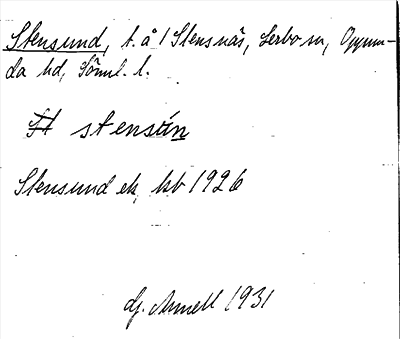 Stensund, t. å 1 Stensnäs, Lerbo sn, Oppun-
da hd, Söml. l.
stensún
Stensund ek, kb 1926
Dj. Armell 1931